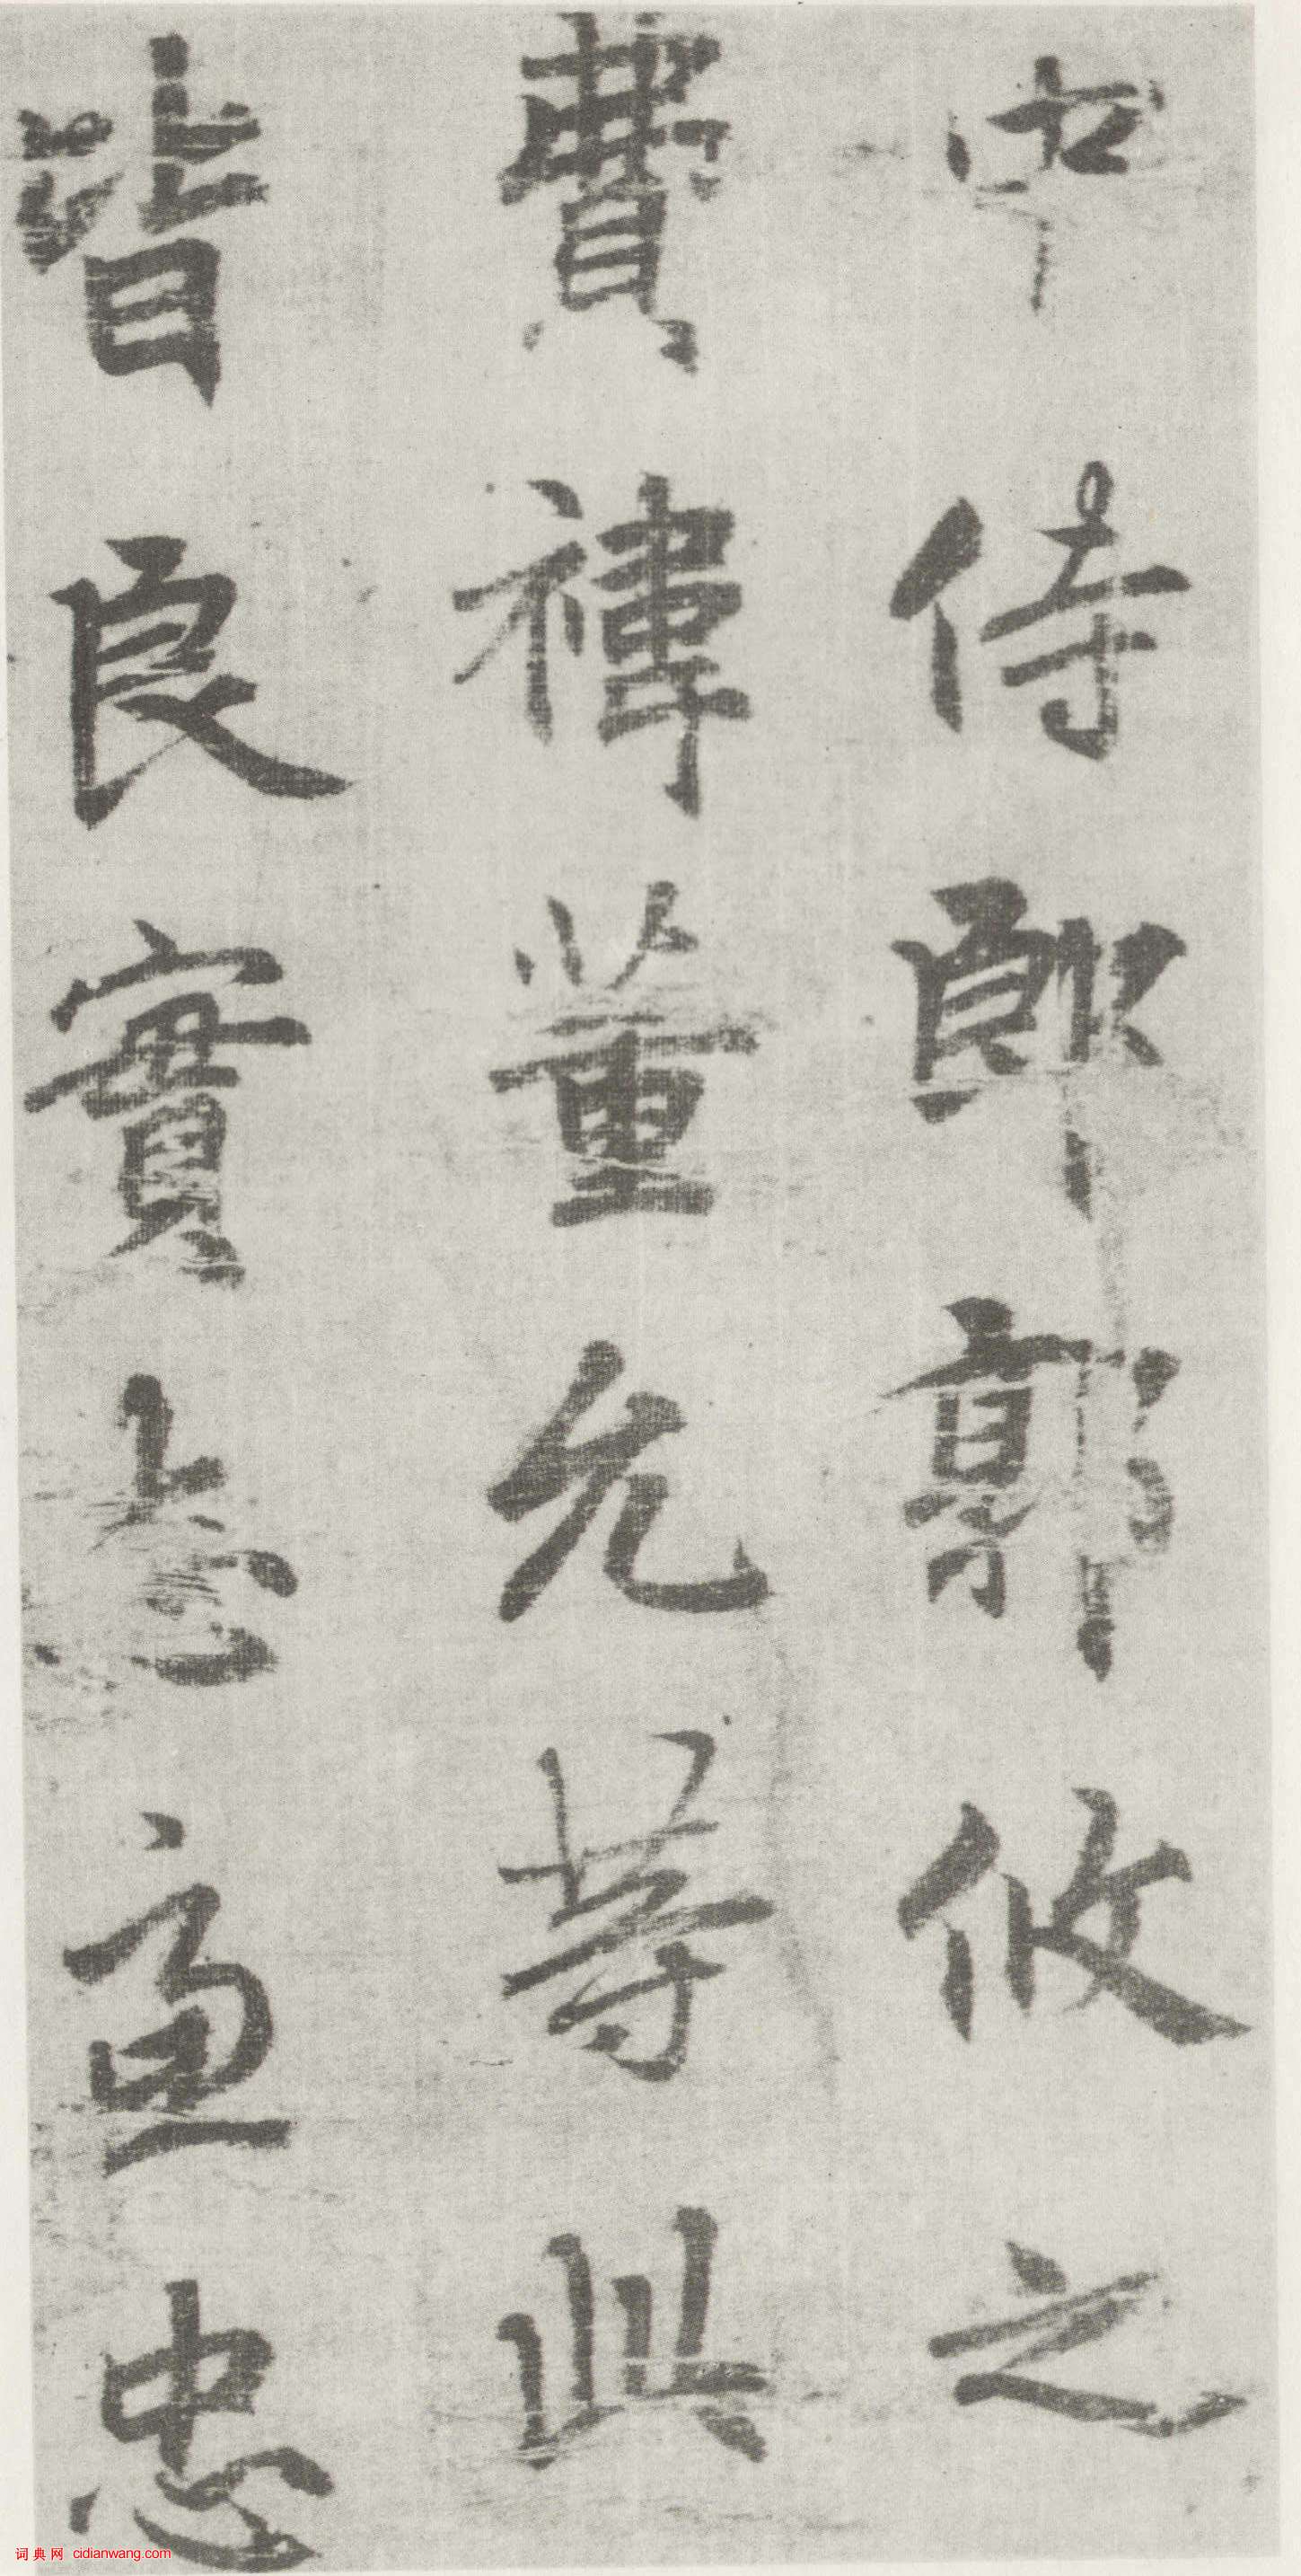 中侍郎郭攸之
費禕董允等此
皆良實志慮忠
词典网 cidianwang.com